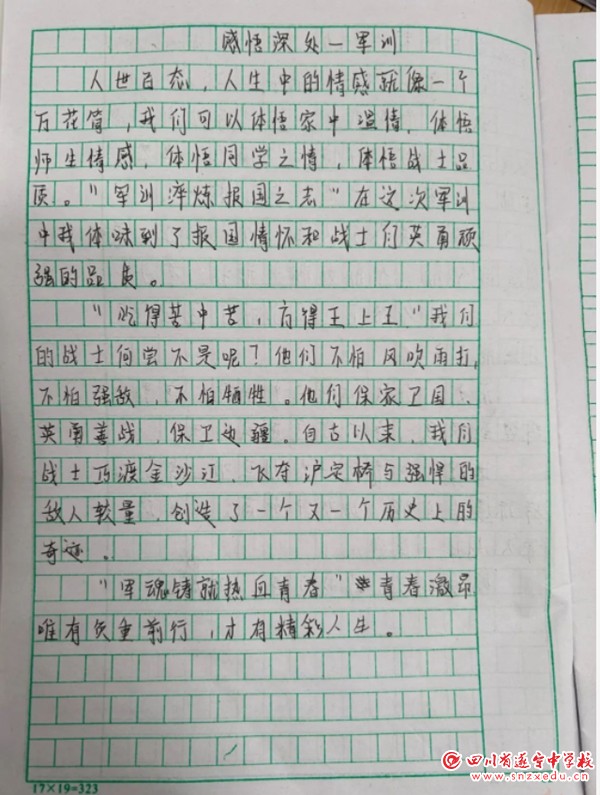 感悟深处一军训
人世百态，人生中的情感就像一个
万花筒，我们可以体悟家中温情，体悟
师生情感，体悟同学之情，体悟战士品
质。"军训淬炼报国之志"在这次军训
中我体味到了报国情怀和战士们英勇顽
强的品质。
"吃得苦中苦，方得王上王"我们
的战士何尝不是呢？他们不怕风吹雨打，
不怕强敌，不怕牺牲。他们保家卫国、
英勇善战，保卫边疆。自古以来，我们
战士巧渡金沙江，飞夺泸定桥与强悍的
敌人较量，创造了一个又一个历史上的
奇迹。
"军魂铸就热血青春"青春激昂
唯有负重前行，才有精彩人生。
17×19=323
四川省遂宁中学校
www.snzxedu.cn